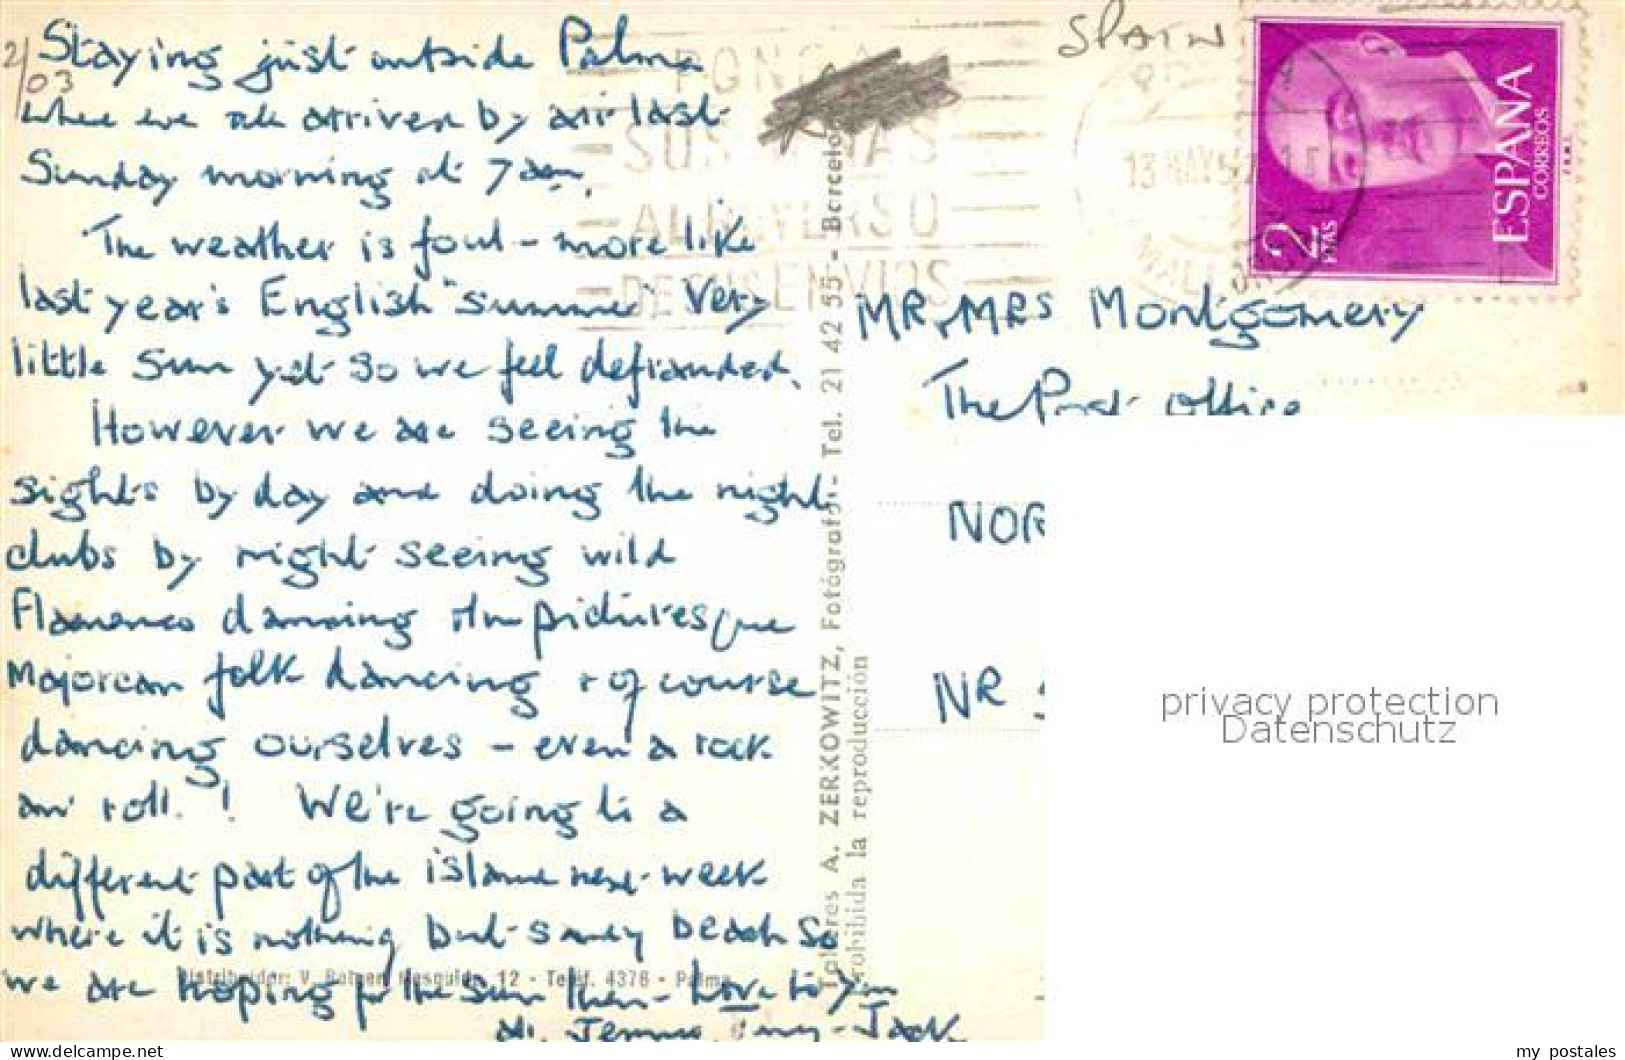 2/03
Staying just outside Palma
where we all arrived by air last
Sunday morning at 7 am.
The weather is foul - more like
last year's English "summer" Very
little sun yet so we feel defrauded.
However we are seeing the
sights by day and doing the night
clubs by night seeing wild
Flamenco dancing the picturesque
Majorcan folk dancing + of course
dancing ourselves - even a rock
an' roll. ! We're going to a
different part of the island next week
where it is nothing but sandy beach so
we are hoping for the sun then - love to you
all. Jack
SPAIN
PONGA
SUS SEÑAS
AL REVERSO
DE SUS ENVIOS
13 MAY 57
MALLORCA
2 PTAS
ESPAÑA
CORREOS
MR, MRS Montgomery
The Post Office
NOR
NR S
Talleres A. ZERKOWITZ, Fotógrafo - Tel. 21 42 55 - Barcelona
Prohibida la reproducción
Distribuidor: V. 12 - Teléf. 4376 - Palma
privacy protection
Datenschutz
my postales